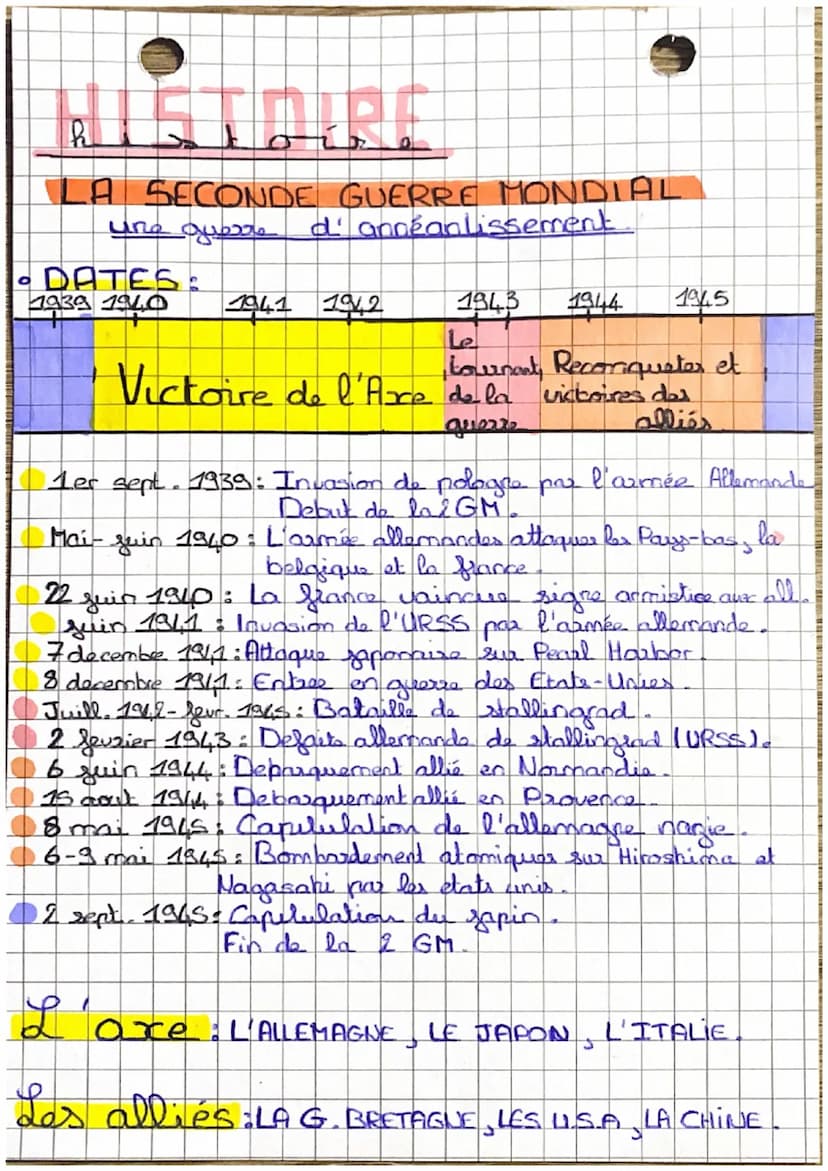 HISTOIRE
histoire
LA SECONDE GUERRE MONDIAL
une guerre d'annéantissement.
• DATES :
1939 1940 1941 1942 1943 1944 1945
Victoire de l'Axe
Le
tournant
de la
guerre
Reconquetes et
victoires des
alliés
1er sept. 1939 : Invasion de pologne par l'armée Allemande
Debut de la 2GM.
Mai-juin 1940 : L'armée allemandes attaques les Pays-bas, la
belgique et la france.
22 juin 1940 : La france vaincue signe armistice aux all.
juin 1941 : Invasion de l'URSS par l'armée allemande.
7 decembe 1941 : Attaque japonaise sur Pearl Harbor.
8 decembre 1941 : Entree en guerre des Etats-Unies.
Juill. 1942-fevr. 1943 : Bataille de stallingrad.
2 fevrier 1943 : Defaite allemande de stallingrad (URSS).
6 juin 1944 : Debarquement allié en Normandie.
15 aout 1944 : Debarquement allié en Provence.
8 mai 1945 : Capitulation de l'allemagne nazie.
6-9 mai 1945 : Bombardement atomiques sur Hiroshima et
Nagasaki par les etats unis.
2 sept. 1945 : Capitulation du japin.
Fin de la 2 GM.
L'axe : L'ALLEMAGNE, LE JAPON, L'ITALIE.
Les alliés : LA G. BRETAGNE, LES U.S.A, LA CHINE.